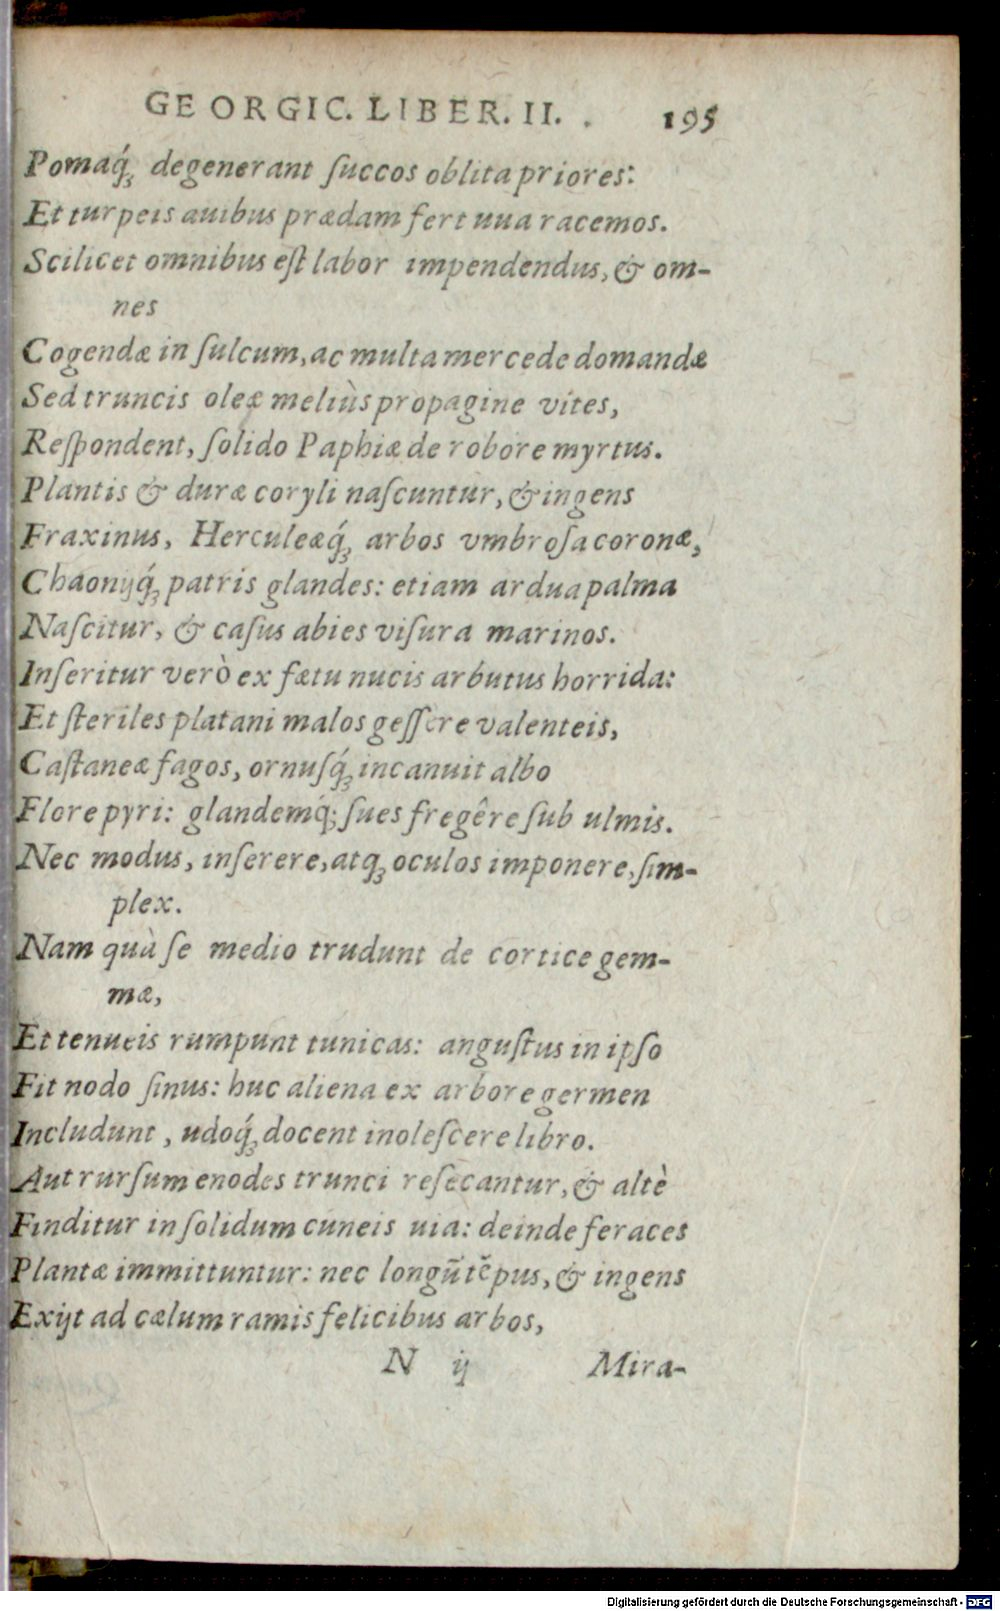 GEORGIC. LIBER. II. 195
Pomaq́ꝫ degenerant ſuccos oblita priores:
Et turpeis auibus prædam fert uua racemos.
Scilicet omnibus eſt labor impendendus, & om-
nes
Cogendæ in ſulcum, ac multa mercede domandæ
Sed truncis oleæ meliùs propagine vites,
Reſpondent, ſolido Paphiæ de robore myrtus.
Plantis & duræ coryli naſcuntur, & ingens
Fraxinus, Herculeæq́ꝫ arbos vmbroſa coronæ,
Chaonijq́ꝫ patris glandes: etiam ardua palma
Naſcitur, & caſus abies viſura marinos.
Inſeritur verò ex fætu nucis arbutus horrida:
Et ſteriles platani malos geſſere valenteis,
Caſtaneæ fagos, ornuſq́ꝫ incanuit albo
Flore pyri: glandemq́; ſues fregêre ſub ulmis.
Nec modus, inſerere, atqꝫ oculos imponere, ſim-
plex.
Nam quà ſe medio trudunt de cortice gem-
mæ,
Et tenueis rumpunt tunicas: anguſtus in ipſo
Fit nodo ſinus: huc aliena ex arbore germen
Includunt, udoq́ꝫ docent inoleſcere libro.
Aut rurſum enodes trunci reſecantur, & altè
Finditur in ſolidum cuneis uia: deinde feraces
Plantæ immittuntur: nec longũ tẽpus, & ingens
Exijt ad cælum ramis felicibus arbos,
N ij Mira-
Digitalisierung gefördert durch die Deutsche Forschungsgemeinschaft - DFG